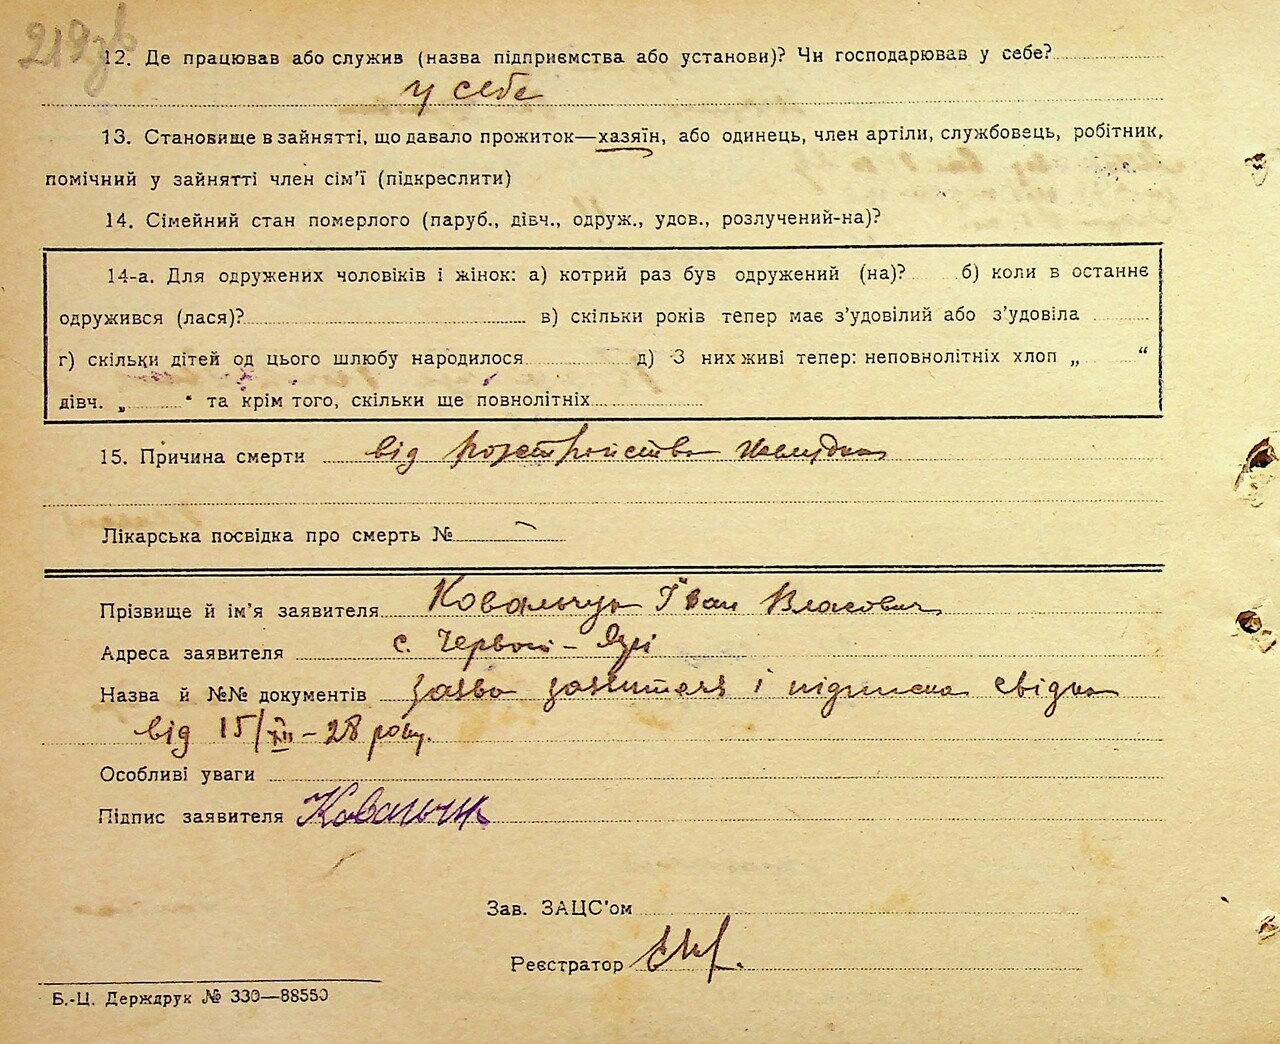 219зв
12. Де працював або служив (назва підприємства або установи)? Чи господарював у себе?
у себе
13. Становище в зайнятті, що давало прожиток—хазяїн, або одинець, член артіли, службовець, робітник,
помічний у зайнятті член сім'ї (підкреслити)
14. Сімейний стан померлого (паруб., дівч., одруж., удов., розлучений-на)?
14-а. Для одружених чоловіків і жінок: а) котрий раз був одружений (на)? б) коли в останнє
одружився (лася)? в) скільки років тепер має з'удовілий або з'удовіла
г) скільки дітей од цього шлюбу народилося д) З них живі тепер: неповнолітніх хлоп „ “
дівч. „ “ та крім того, скільки ще повнолітніх
15. Причина смерти від розстройства желудка
Лікарська посвідка про смерть № —
Прізвище й ім'я заявителя Ковальчук Іван Власович
Адреса заявителя с. Червоні-Яри
Назва й №№ документів заява заявителя і підписка свідка
від 15/XII – 28 року.
Особливі уваги
Підпис заявителя Ковальчук
Зав. ЗАЦС'ом
Реєстратор
Б.-Ц. Держдрук № 330—88550